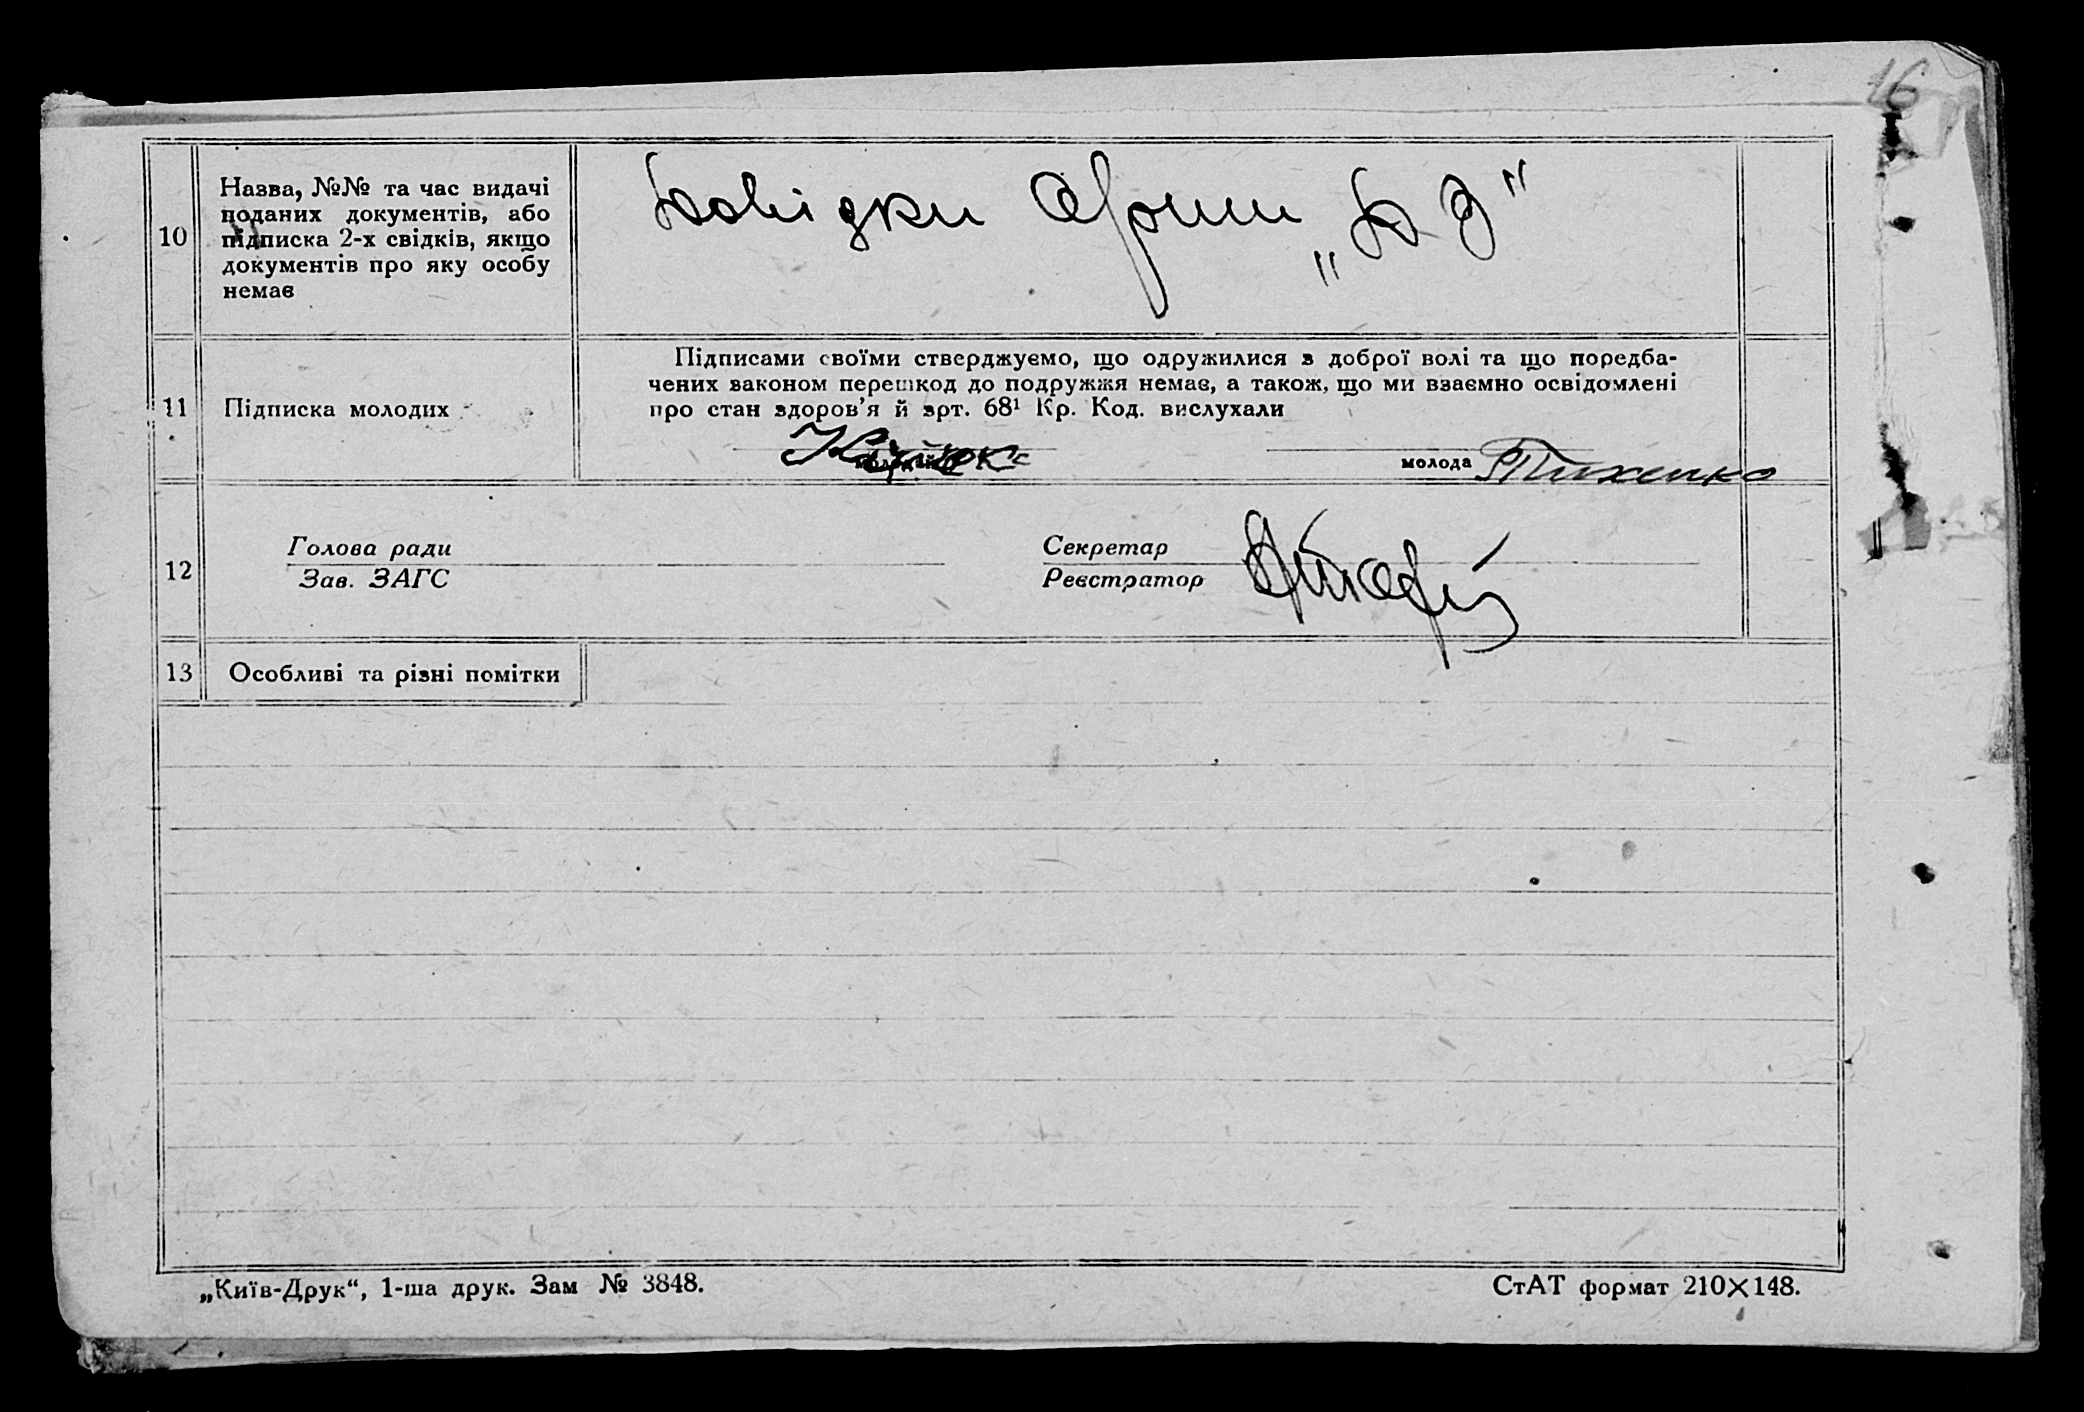 16
10
Назва, №№ та час видачі
поданих документів, або
підписка 2-х свідків, якщо
документів про яку особу
немає
Довідки „
11
Підписка молодих
Підписами своїми стверджуємо, що одружилися з доброї волі та що поредба-
чених законом перешкод до подружжя немає, а також, що ми взаємно освідомлені
про стан здоров’я й арт. 68¹ Кр. Код. вислухали
молодий
молода Тихенко
12
Голова ради
Зав. ЗАГС
Секретар
Реєстратор
13
Особливі та різні помітки
„Київ-Друк“, 1-ша друк. Зам № 3848.
СтАТ формат 210×148.